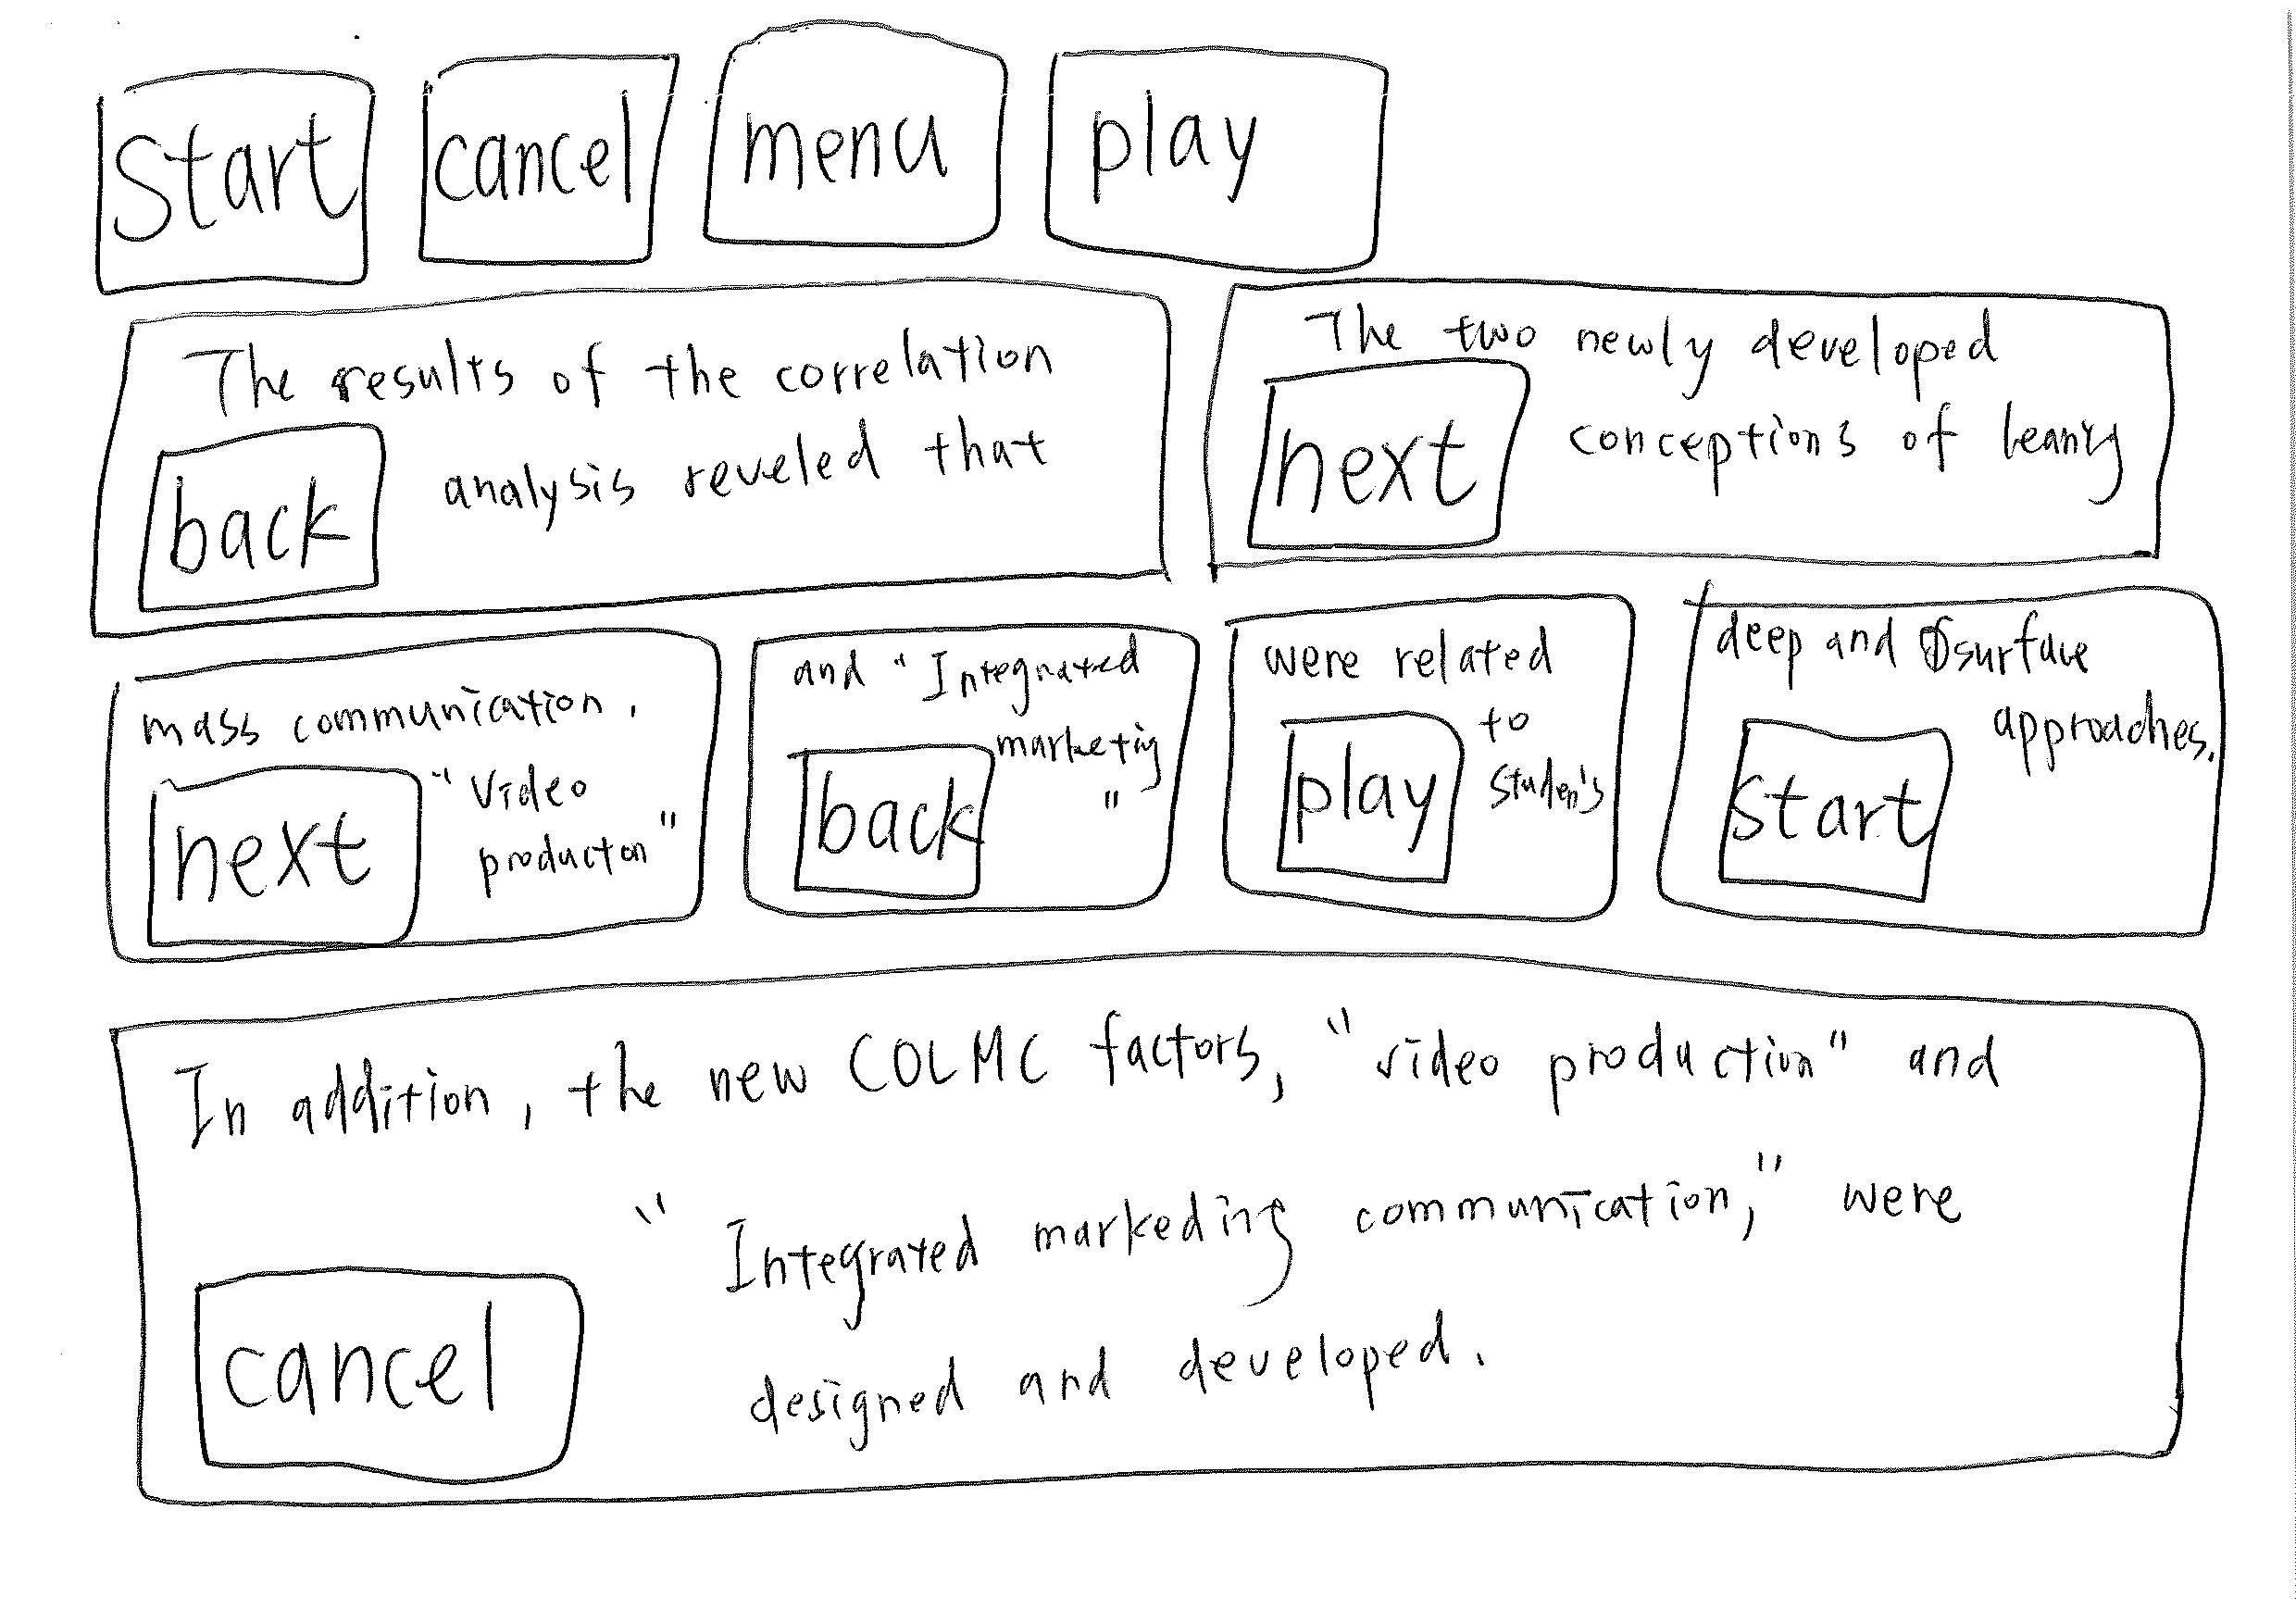 Start
cancel
menu
play
The results of the correlation
analysis reveled that
back
The two newly developed
conceptions of leaning
next
mass communication.
"Video
producton"
next
and "Integrated
marketig
"
back
were related
to
studen's
play
deep and surface
approaches.
start
In addition, the new COLMC factors, "video production" and
"Integrated markeding communication," were
designed and developed.
cancel